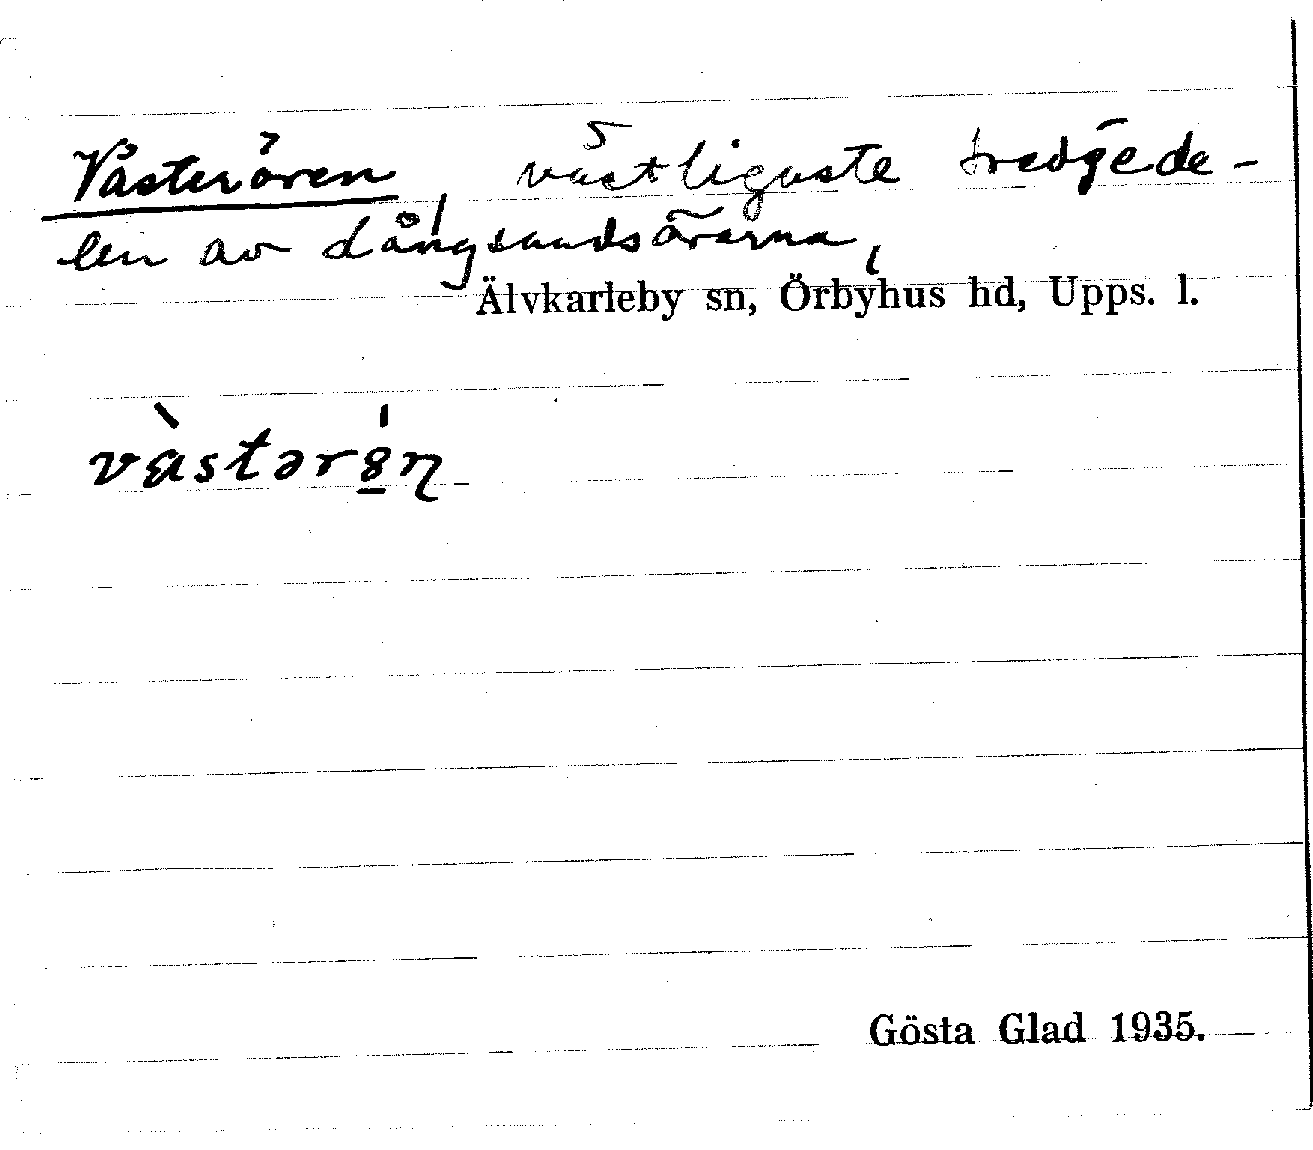 Västerören, västligaste tredjede-
len av Långsandsörarna,
Älvkarleby sn, Örbyhus hd, Upps. l.
vàstərö́n
Gösta Glad 1935.